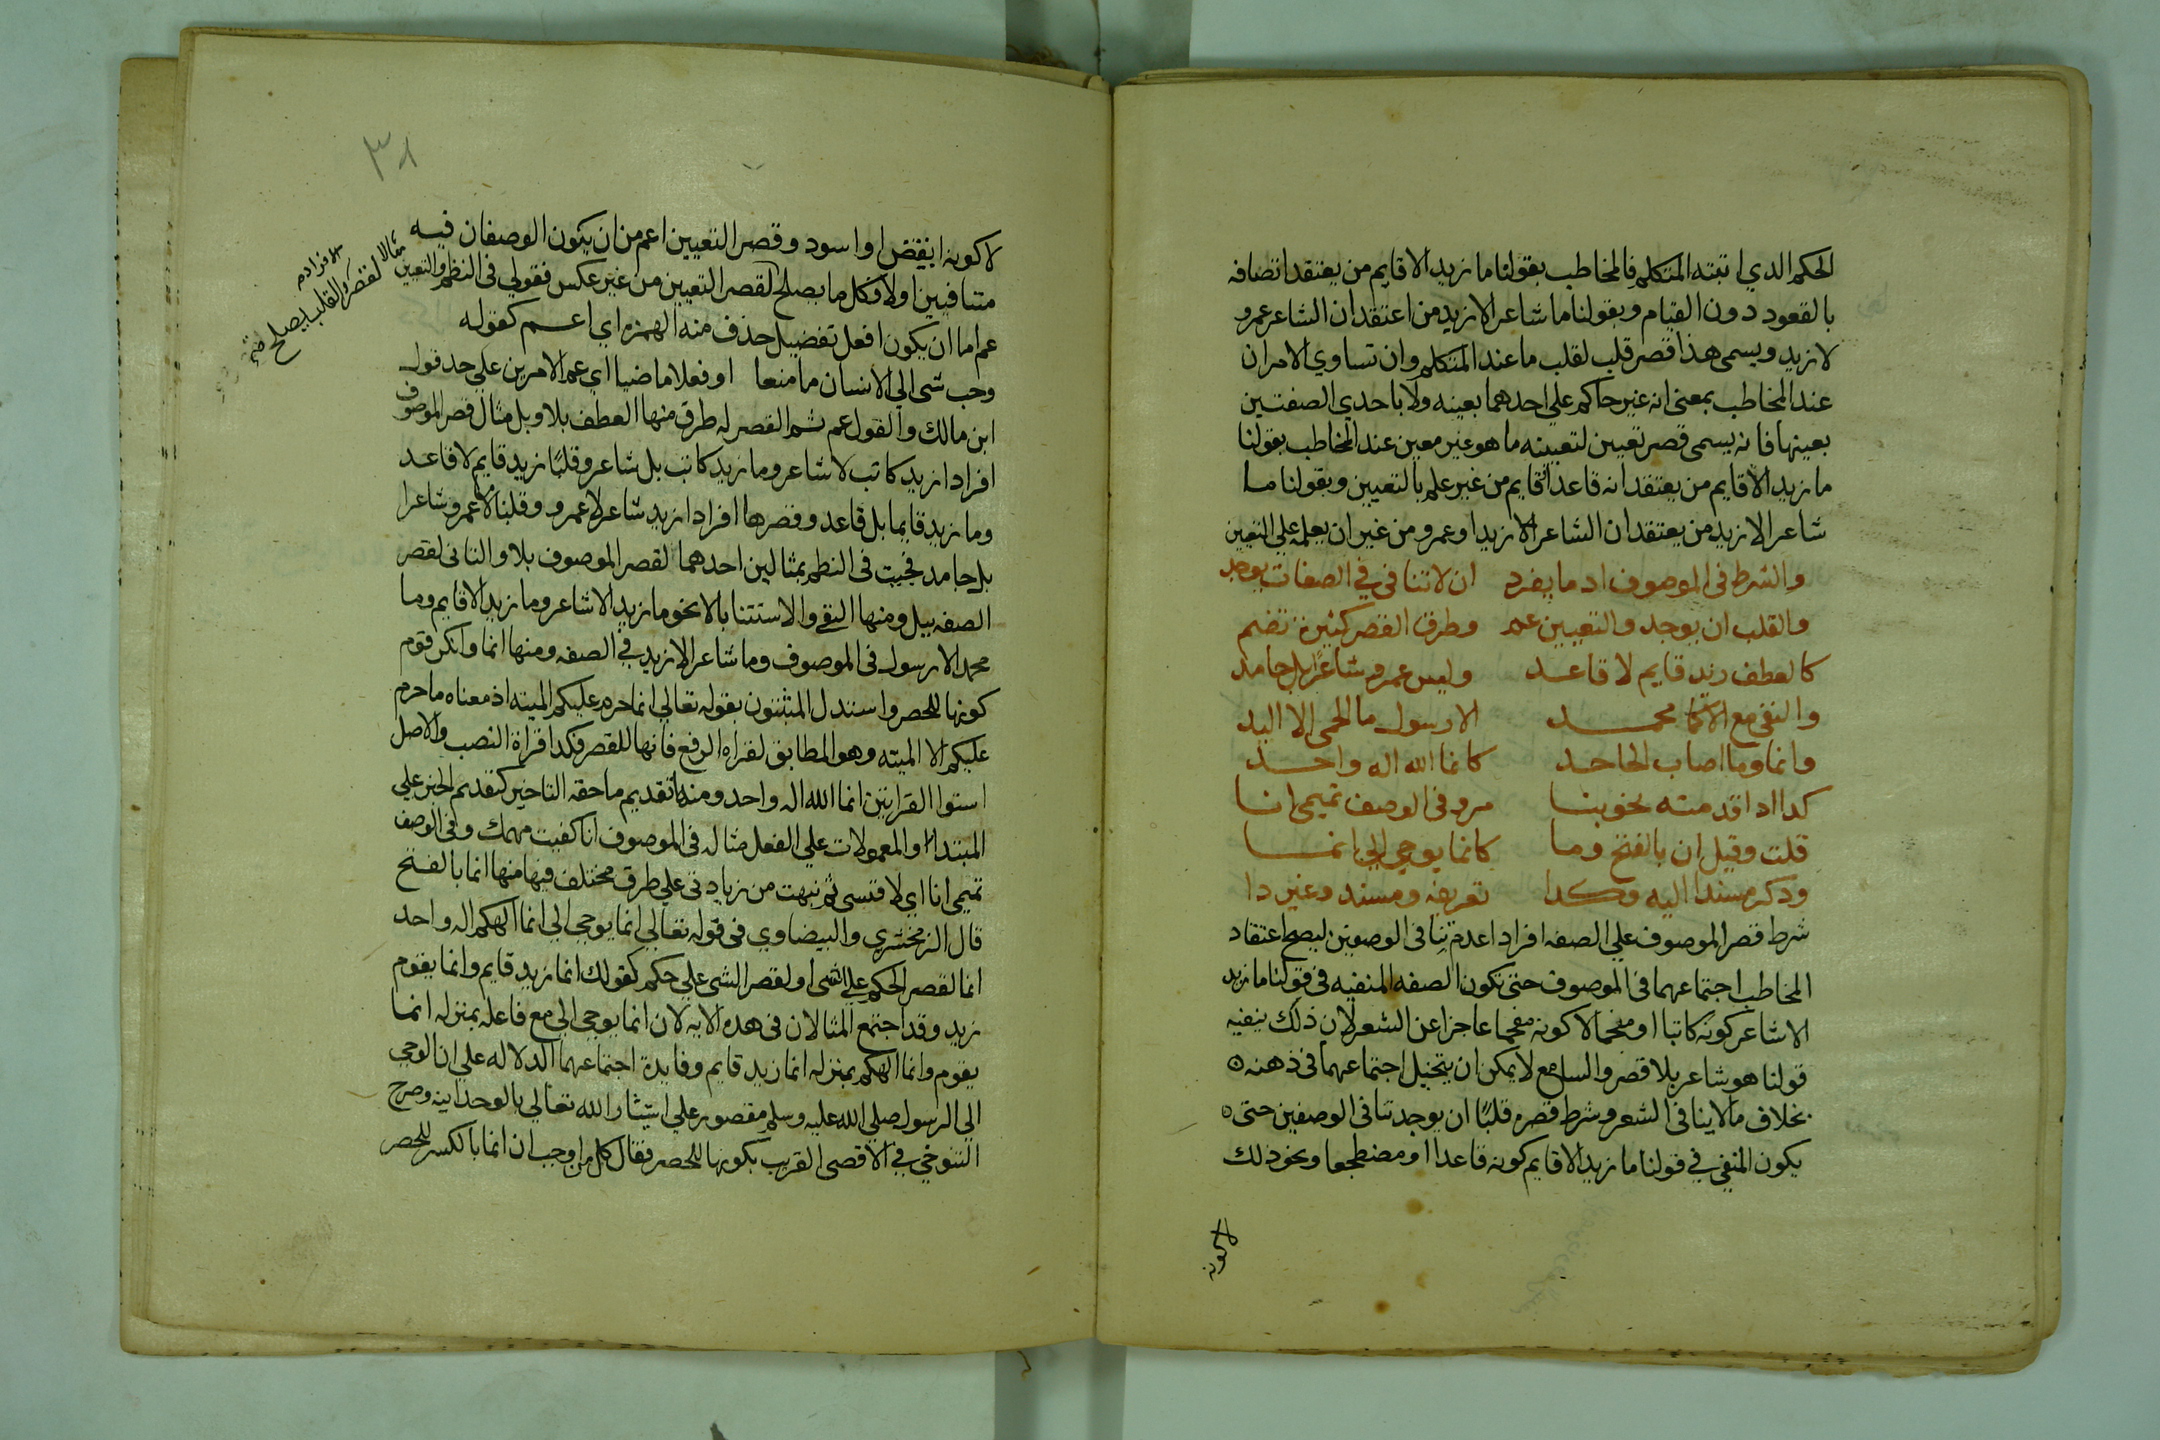 الحكم الدي اتبته المتكلم فالمخاطب بقولنا ما زيد الا قايم من يعتقد اتصافه
بالقعود دون القيام وبقولنا ما شاعر الا زيد من اعتقد ان الشاعر عمرو
لا زيد ويسمى هذا قصر قلب لقلب ما عند المتكلم وان تساوي الامران
عند المخاطب بمعنى انه غير حاكم علي احدهما بعينه ولا باحدي الصفتين
بعينها فانه يسمى قصر تعيين لتعيينه ما هو غير معين عند المخاطب بقولنا
ما زيد الا قايم من يعتقد انه قاعد اقايم من غير علم بالتعيين وبقولنا ما
شاعر الا زيد من يعتقد ان الشاعر الا زيد او عمرو من غير ان يعلمه علي التعيين
والشرط في الموصوف اد ما يفرد ان لا تنافي في الصفات يوجد
والقلب ان يوجد والتعيين عم وطرق القصر كثيرة تضم
كالعطف زيد قايم لا قاعد وليس عمرو شاعرًا بل جامد
والنفي مع الا محمد الا رسول ما لحمى الا اليد
وانما وما اصاب الجاحد كانما الله اله واحد
كدا اد اقدمته نحو بنا مر وفي الوصف تميمى انا
قلت وقيل ان بالفتح وما كانما يوحي الي انما
ودكر مسندا اليه وكدا تعريفه ومسند وغير دا
شرط قصر الموصوف علي الصفه افرادا عدم تنافي الوصفين ليصح اعتقاد
المخاطب اجتماعهما في الموصوف حتى تكون الصفه المنفيه في قولنا ما زيد
الا شاعر كونه كاتبا او منجما لا كونه مفحما عاجزا عن الشعر لان ذلك ينفيه
قولنا هو شاعر بلا قصر والسامع لا يمكن ان يتخيل اجتماعهما في ذهنه
بخلاف ما لا ينافي الشعر وشرط قصره قلبًا ان يوجد تنافي الوصفين حتى
يكون المنفي في قولنا ما زيد الا قايم كونه قاعدا او مضطجعا ونحو ذلك
لا كونه
٣٨
لا كونه ابيض او اسود وقصر التعيين اعم من ان يكون الوصفان فيه
متنافيين اولا فكل ما يصلح لقصر التعيين من غير عكس فقولي في النظم والتعيين
مثالا لقصر والقلب يصلح
الافراد م
عم اما ان يكون افعل تفضيل حذف منه الهمزه اي اعم كقوله
وحب شي الي الانسان ما منعا او فعلا ماضيا اي عم الامرين علي حد قول
ابن مالك والقول عم ثم القصر له طرق منها العطف بلا وبل مثال قصر الموصوف
افرادا زيد كاتب لا شاعر وما زيد كاتب بل شاعر وقلبًا زيد قايم لا قاعد
وما زيد قايما بل قاعد وقصرها افرادا زيد شاعر لا عمرو وقلبا ما عمرو شاعرا
بل جامد فجيت في النظم بمثالين احدهما لقصر الموصوف بلا والثاني لقصر
الصفه ببل ومنها النفي والاستثنا بالا نحو ما زيد الا شاعر وما زيد الا قايم وما
محمد الا رسول في الموصوف وما شاعر الا زيد في الصفه ومنها انما وانكر قوم
كونها للحصر واستدل المثبتون بقوله تعالي انما حرم عليكم الميته اذ معناه ما حرم
عليكم الا الميته وهو المطابق لقراه الرفع فانها للقصر فكدا قراة النصب والاصل
استوا القرايتين انما الله اله واحد ومنها تقديم ما حقه التاخير كتقديم الخبر علي
المبتدا او المعمولات علي الفعل مثاله في الموصوف انا كفيت مهمك وفي الوصف
تميمي انا اي لا قيسي ثم نبهت من زيادتي علي طرق مختلف فيها منها انما بالفتح
قال الزمخشري والبيضاوي في قوله تعالي انما يوحي الي انما الهكم اله واحد
انما لقصر الحكم علي الشي او لقصر الشي علي حكم كقولك انما زيد قايم وانما يقوم
زيد وقد اجتمع المثالان في هده الايه لان انما يوحي الي مع فاعله بمنزله انما
يقوم وانما الهكم بمنزله انما زيد قايم وفايدة اجتماعهما الدلاله علي ان الوحي
الي الرسول صلي الله عليه وسلم مقصور علي استيثار الله تعالي بالوحدانيه وصرح
التنوخي في الاقصى القريب بكونها للحصر فقال كل ما اوجب ان انما بالكسر للحصر